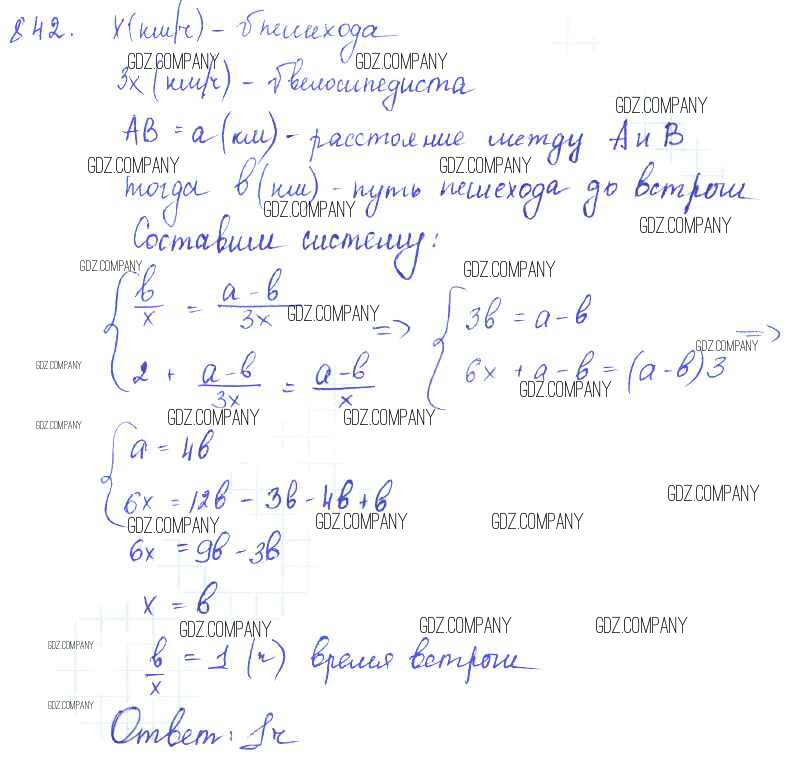 842. x (км/ч) - υ пешехода
GDZ.COMPANY GDZ.COMPANY
3x (км/ч) - υ велосипедиста
GDZ.COMPANY
AB = a (км) - расстояние между A и B
GDZ.COMPANY GDZ.COMPANY
тогда в (км) - путь пешехода до встречи
GDZ.COMPANY GDZ.COMPANY
Составим систему:
GDZ.COMPANY GDZ.COMPANY
{ в/x = (a - в)/3x GDZ.COMPANY => { 3в = a - в
GDZ.COMPANY GDZ.COMPANY
2 + (a - в)/3x = (a - в)/x 6x + a - в = (a - в) 3 =>
GDZ.COMPANY
GDZ.COMPANY GDZ.COMPANY GDZ.COMPANY
{ a = 4в
6x = 12в - 3в - 4в + в
GDZ.COMPANY
GDZ.COMPANY GDZ.COMPANY GDZ.COMPANY
6x = 9в - 3в
x = в
GDZ.COMPANY GDZ.COMPANY GDZ.COMPANY
GDZ.COMPANY
в/x = 1 (ч) время встречи
GDZ.COMPANY
Ответ: 1ч